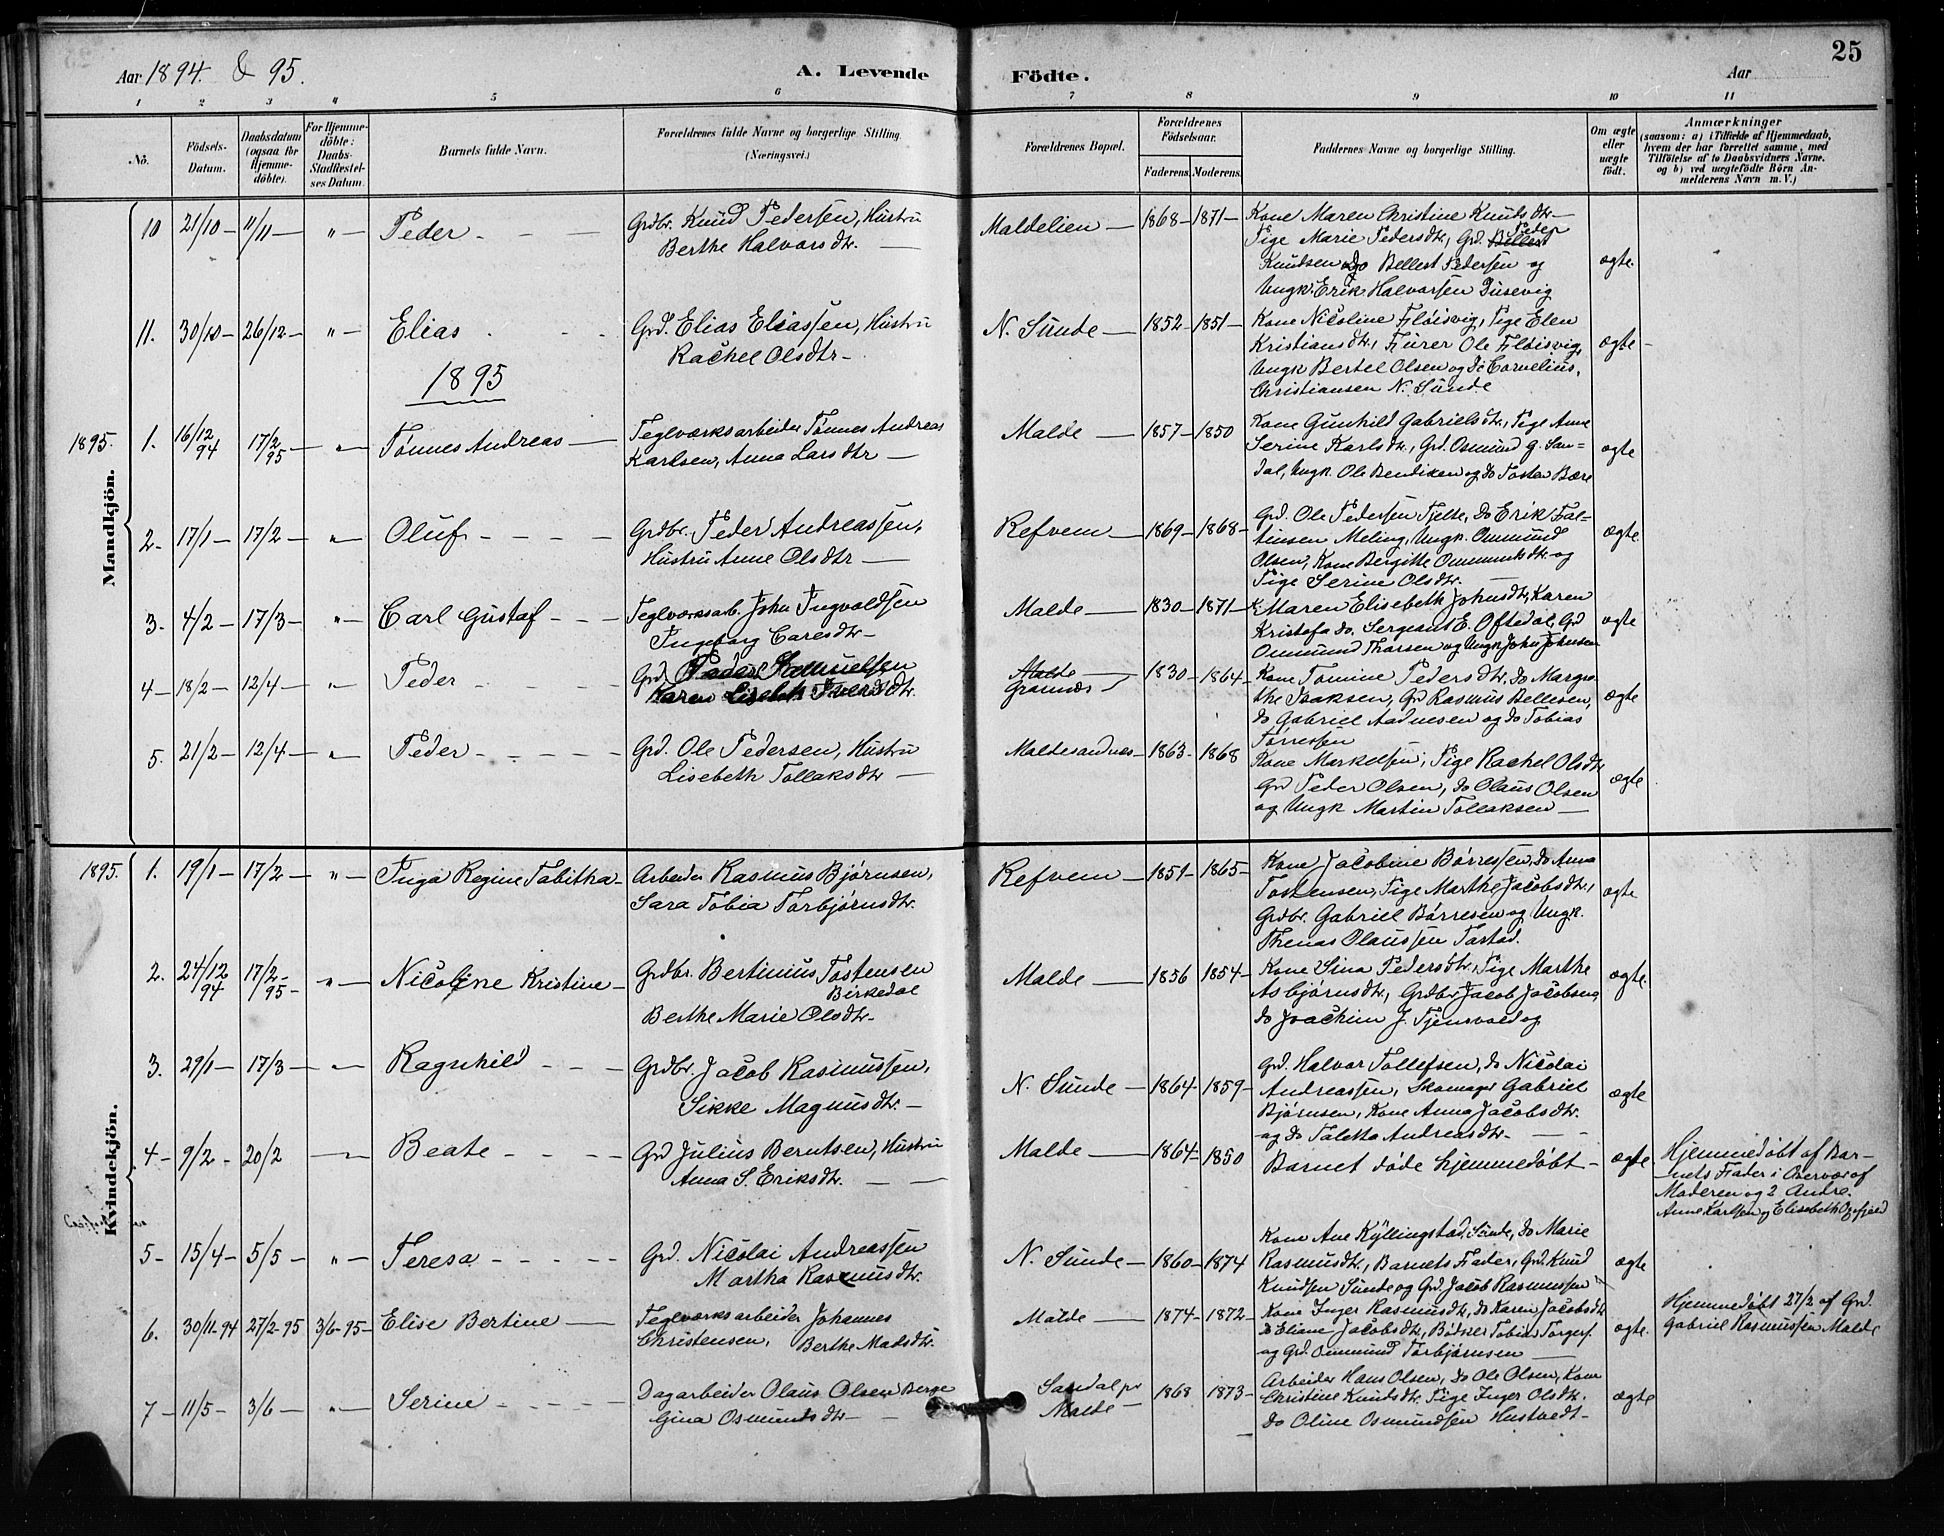 25
Aar 1894. & 95. A. Levende Födte. Aar
1 2 3 4 5 6 7 8 9 10 11
No. Födsels-Datum. Daabsdatum (ogsaa for Hjemme-döbte). For Hjemme-döbte: Daabs-Stadfæstel-ses Datum. Barnets fulde Navn. Forældrenes fulde Navne og borgerlige Stilling. (Næringsvei.) Forældrenes Bopæl. Forældrenes Födselsaar. Faderens. Moderens. Faddernes Navne og borgerlige Stilling. Om ægte eller uægte födt. Anmærkninger (saasom: a) i Tilfælde af Hjemmedaab, hvem der har forrettet samme, med Tilföielse af to Daabsvidners Navne. og b) ved uægtefödte Börn An-melderens Navn m. V.)
Mandkjön.
10 21/10 – 11/11 – " – Peder – – –
Grdbr. Knud Pedersen, Hustru
Berthe Halvorsdtr. –
Maldelien – 1868 – 1871 –
Kone Maren Christine Knudsdtr –
Pige Marie Pedersdtr, Grd. Peder
Knudsen og do Bellest Pedersen og
Ungk. Erik Halvorsen Dusevig
ægte.
11. 30/10 – 26/12 – " – Elias . – –
Grd. Elias Eliassen, Hustru
Rachel Olsdtr –
N. Sunde – 1852 – 1851 –
Kone Nicoline Fløisvig, Pige Elen
Kristiansdtr, Furer Ole Fløisvig,
Ungk Bertel Olsen og do Cornelius,
Christiansen N. Sunde
ægte –
1895
1895. 1. 16/12 94 17/2 95 – " – Tønnes Andreas –
Teglværksarbeider Tønnes Andreas
Karlsen, Anna Larsdtr –
Malde – 1857 – 1850
Kone Gunhild Gabrielsdtr, Pige Anne
Serine Karlsdtr, Grd. Osmund G. San-
dal, Ungk. Ole Bendiksen og do Tosten Bære
ægte
2. 17/1 – 17/2 – " – Oluf – – – –
Grdbr. Peder Andreassen,
Hustru Anne Olsdtr –
Refvem – 1869 – 1868 –
Grd. Ole Pedersen Tjelte, do Erik Fal-
Meling, Ungk. Ommund
Olsen, Kone Bergitte Ommundsdtr og
Pige Serine Olsdtr. –
ægte
3. 4/2 – 17/3 – " – Carl Gustaf – – –
Teglværksarb. John Ingvaldsen
Ingeborg
Malde – 1830 – 1871 –
K. Maren Elisebeth Johnsdtr, Karen
Kristofa do, Sergeant E. Oftedal, Grd
Ommund Tharsen og Ungk John Johnsen
ægte
4 – 18/2 – 12/4 – " – Peder –
Grd. Peder Samuelsen
Karen Lisebeth Iversdtr.
Malde
Grannes 1830 – 1864 –
Kone Tomine Pedersdtr, do Margre-
the Isaksen, Grd Rasmus Bellesen,
do Gabriel Aadnesen og do Tobias
Tørressen
ægte
5. 21/2 – 12/4 – " – Peder – – – –
Grd. Ole Pedersen, Hustru
Lisebeth Tollaksdtr –
Maldesandnæs – 1863 – 1868
Kone Markussen, Pige Rachel Olsdtr
Grd Peder Olsen, do Claus Olsen
og Ungk Martin Tollaksen –
ægte
Kvindekjön.
1895. 1. 19/1 – 17/2 – " – Inga Regine Tabitha –
Arbeider Rasmus Bjørnsen,
Sara Tobia Torbjørnsdtr.
Refvem – 1851 – 1865 –
Kone Jacobine Børresen, do Anna
Tostensen, Pige Marthe Jacobsdtr,
Grdbr. Gabriel Børresen og Ungk.
Thomas Claussen Tastad.
ægte
2. 24/12 94 17/2 95 – " – Nicoline Kristine –
Grdbr. Bertinius Tostensen
Birkedal
Berthe Marie Olsdtr –
Malde – 1856 1854 –
Kone Sina Pedersdtr, Pige Marthe
Asbjørnsdtr, Grdbr Jacob Jacobsen og
do Joachim J. Tjensvold og
ægte.
3. 29/1 – 17/3 – " – Ragnhild – – –
Grdbr. Jacob Rasmussen,
Sikke Magnusdtr. –
N. Sunde – 1864 – 1859 –
Grd. Halvor Tollefsen, do Nicolai
Andreassen, Skomager Gabriel
Bjørnsen, Kone Anna Jacobsdtr.
og do Taletta Andreasdtr. –
ægte
4 – 9/2 – 20/2 – Beate – – –
Grd Julius Berntsen, Hustru
Anna S. Eriksdtr. –
Malde – 1864 – 1850
Barnet døde hjemmedøbt –
ægte
Hjemmedøbt af Bar-
nets Fader i Overvær af
Moderen og 2 Andre.
Anne Karlsen og Elisebeth
5 – 15/4 – 5/5 – " – Teresa – – – –
Grd. Nicolai Andreassen
Martha Rasmusdtr.
N. Sunde – 1860 – 1874
Kone Ane Kyllingstad, Sunde, do Marie
Rasmusdtr, Barnets Fader, Grd. Knud
Knudsen Sunde og Grd. Jacob Rasmussen
ægte
6. 30/11-94 27/2-95 3/6-95 – Elise Bertine –
Teglværksarbeider Johannes
Christensen, Berthe Madsdtr.
Malde – 1874 – 1872 –
Kone Inger Rasmusdtr, do Karen Jacobsdtr
do Eliane Jacobsdtr, Bødker Tobias Torgers.
og Grd. Ommund Torbjørnsen –
ægte.
Hjemmedøbt 27/2 af Grd.
Gabriel Rasmussen Malde
7 – 11/5 – 3/6 – " – Serine – – – –
Dagarbeider Olaus Olsen Berge
Gina Osmundsdtr –
Sandal pr
Malde – 1868 1873 –
Arbeider Hans Olsen, do Ole Olsen, Kone
Christine Knudsdtr. Pige Inger Olsdtr.
do Oline Osmundsen Hustvedt –
ægte